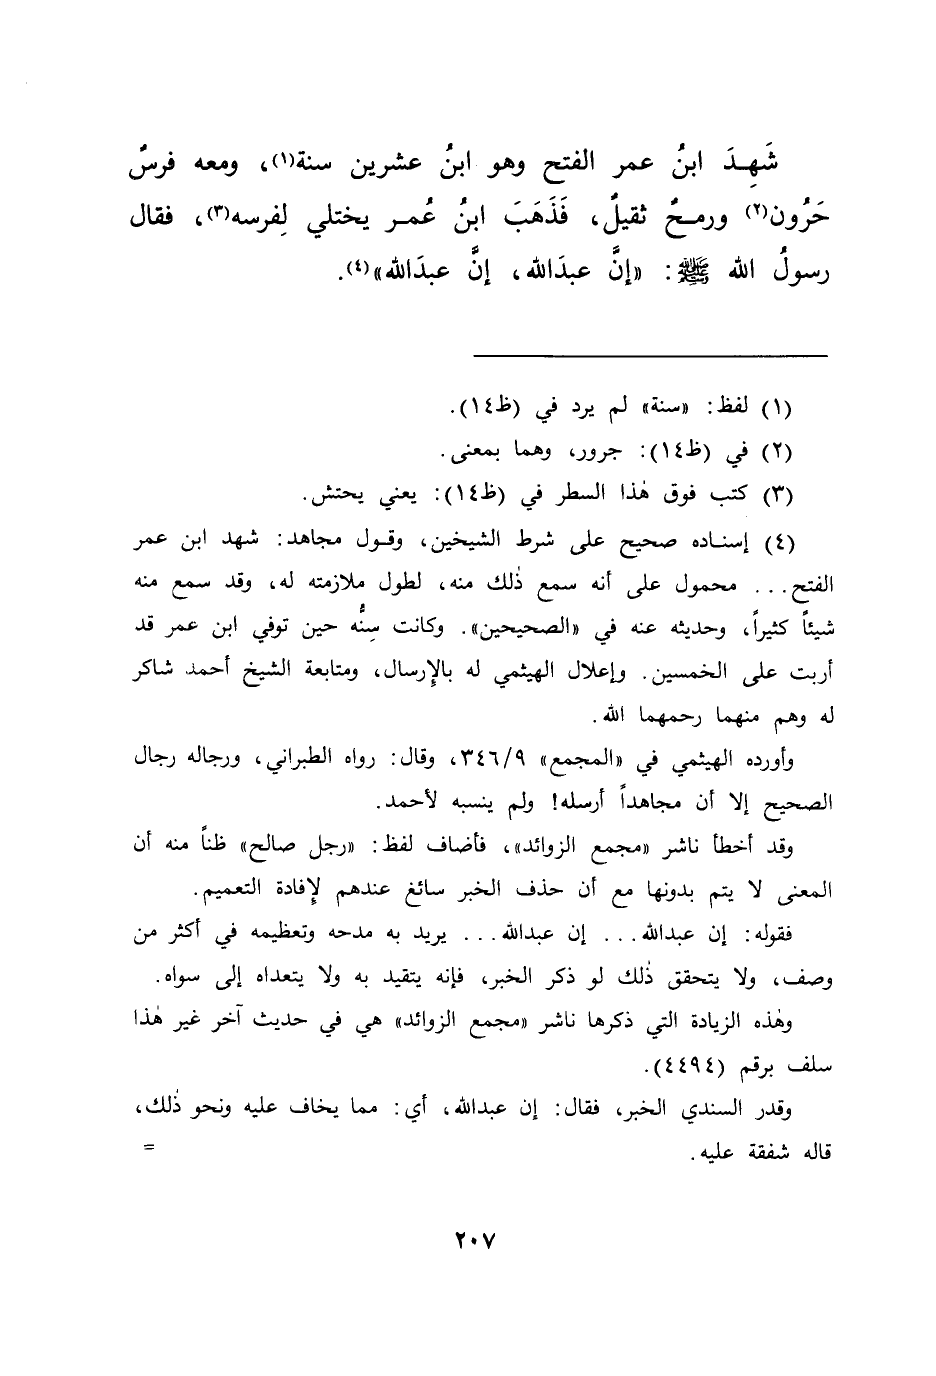 شَهِدَ ابنُ عمر الفتح وهو ابنُ عشرين سنة(١)، ومعه فرسٌ
حَرُون(٢) ورمحٌ ثقيلٌ، فَذَهَبَ ابنُ عُمـر يختلي لِفرسه(٣)، فقال
رسولُ الله ﷺ: «إنَّ عبدَالله، إنَّ عبدَالله»(٤).
(١) لفظ: «سنة» لم يرد في (ظ١٤).
(٢) في (ظ١٤): جرور، وهما بمعنى.
(٣) كتب فوق هٰذا السطر في (ظ١٤): يعني يحتش.
(٤) إسناده صحيح على شرط الشيخين، وقول مجاهد: شهد ابن عمر
الفتح... محمول على أنه سمع ذٰلك منه، لطول ملازمته له، وقد سمع منه
شيئاً كثيراً، وحديثه عنه في «الصحيحين». وكانت سِنُّه حين توفي ابن عمر قد
أربت على الخمسين. وإعلال الهيثمي له بالإِرسال، ومتابعة الشيخ أحمد شاكر
له وهم منهما رحمهما الله.
وأورده الهيثمي في «المجمع» ٣٤٦/٩، وقال: رواه الطبراني، ورجاله رجال
الصحيح إلا أن مجاهداً أرسله! ولم ينسبه لأحمد.
وقد أخطأ ناشر «مجمع الزوائد»، فأضاف لفظ: «رجل صالح» ظناً منه أن
المعنى لا يتم بدونها مع أن حذف الخبر سائغ عندهم لإِفادة التعميم.
فقوله: إن عبدالله... إن عبدالله... يريد به مدحه وتعظيمه في أكثر من
وصف، ولا يتحقق ذٰلك لو ذكر الخبر، فإنه يتقيد به ولا يتعداه إلى سواه.
وهٰذه الزيادة التي ذكرها ناشر «مجمع الزوائد» هي في حديث آخر غير هٰذا
سلف برقم (٤٤٩٤).
وقدر السندي الخبر، فقال: إن عبدالله، أي: مما يخاف عليه ونحو ذٰلك،
قاله شفقة عليه. =
٢٠٧